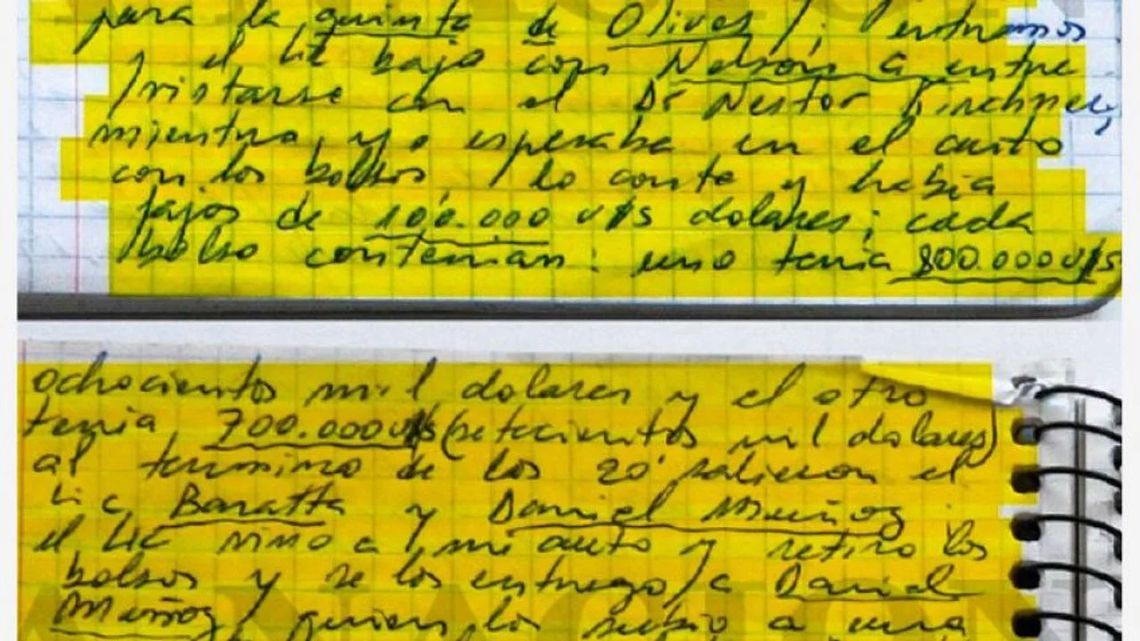 para la quinta de Olivos; entramos
y el Lic bajo con Nelson a entre
vistarse con el Dr Nestor Kirchner,
mientra, yo esperaba en el auto
con los bolsos, lo conte y habia
fajos de 100.000 u$s dolares; cada
bolso contenian: uno tenia 800.000 u$s
ochocientos mil dolares y el otro
tenia 700.000 u$s (setecientos mil dolares)
al termino de los 20' salieron el
Lic Baratta y Daniel Muñoz
el Lic vino a mi auto y retiro los
bolsos y se los entrego a Daniel
Muñoz quien los subio a una